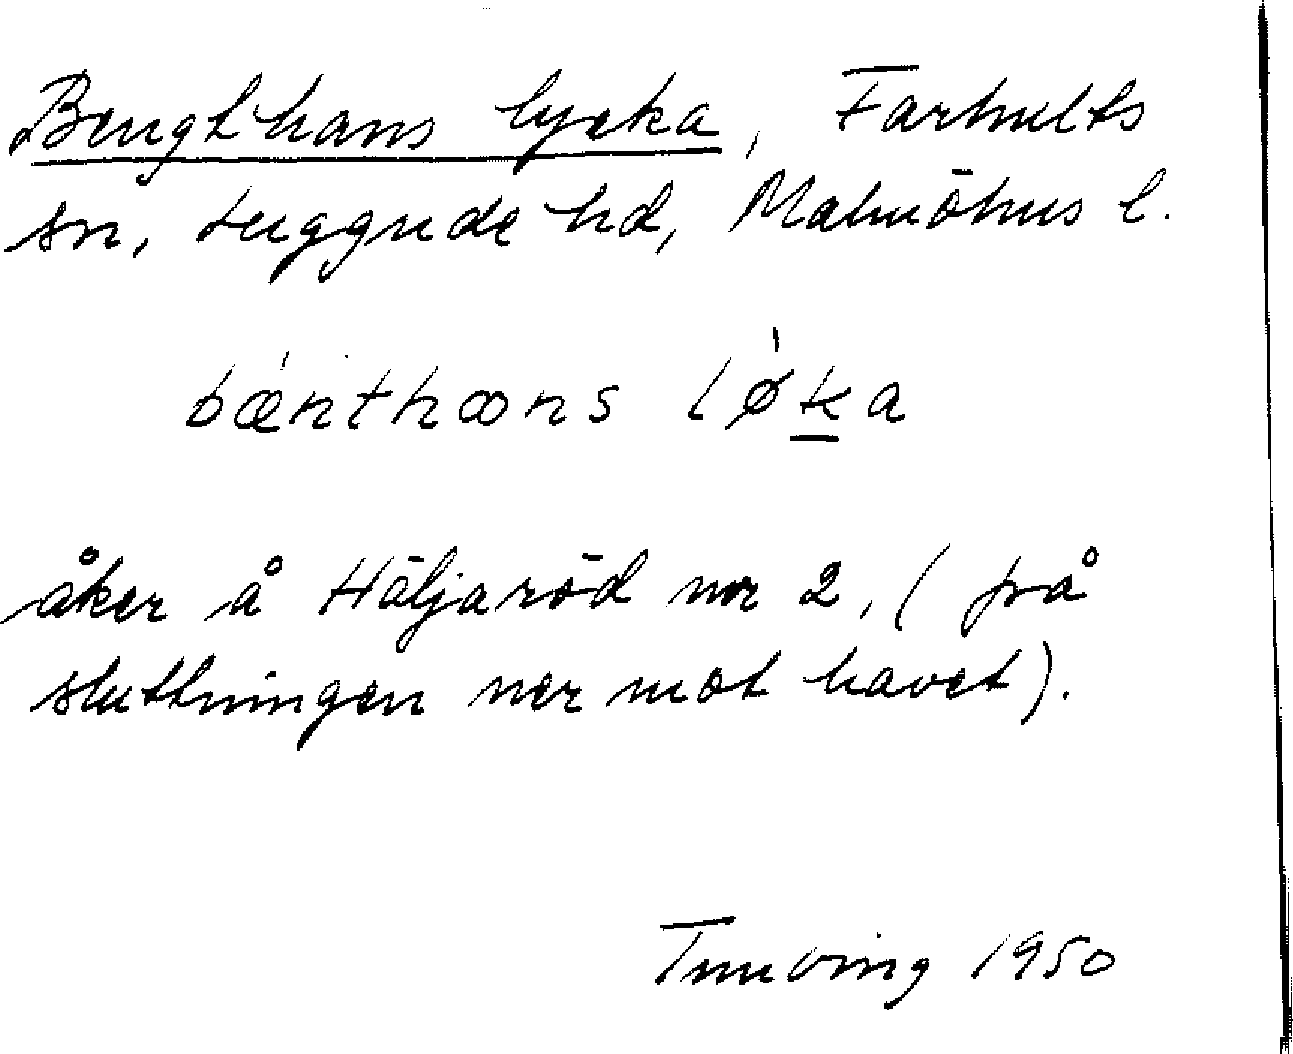 Bengthans lycka, Farhults
sn, Luggude hd, Malmöhus l.
bǽnthans lø̀ka
åker å Häljaröd nr 2, (på
sluttningen ner mot havet).
1950